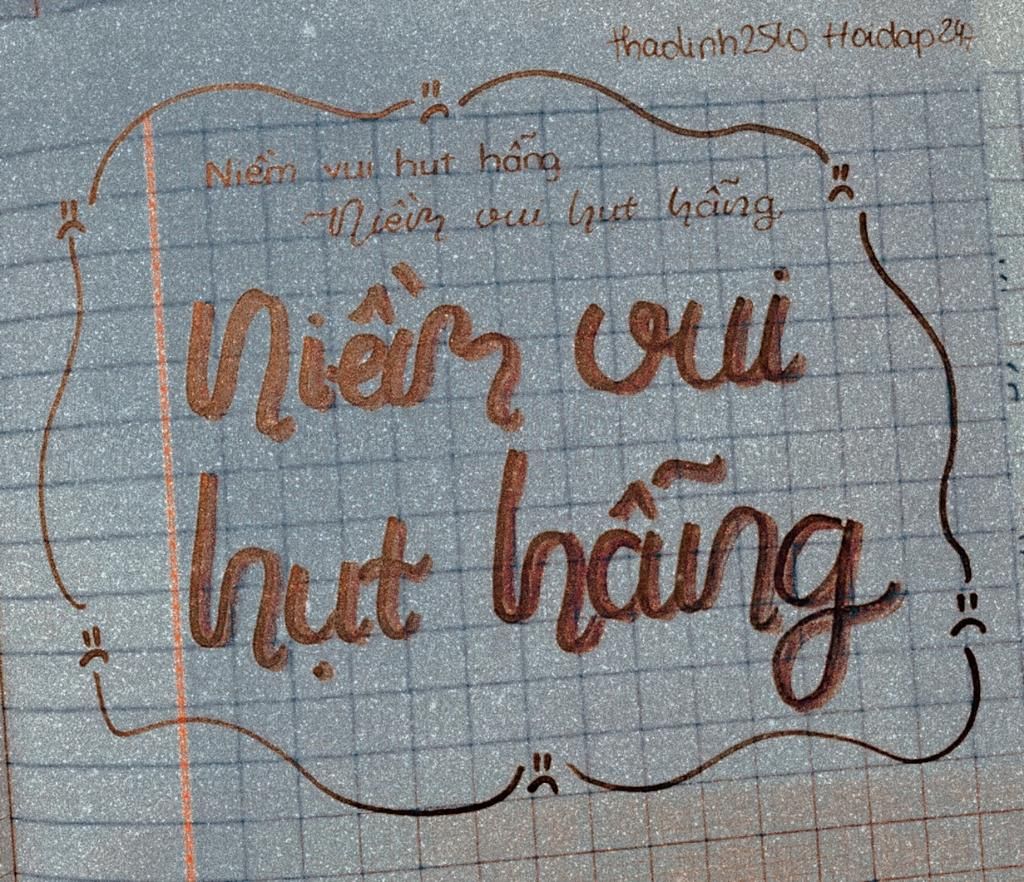 thadinh2510 Hoidap247
Niềm vui hụt hẫng
Niềm vui hụt hẫng
Niềm vui
hụt hẫng